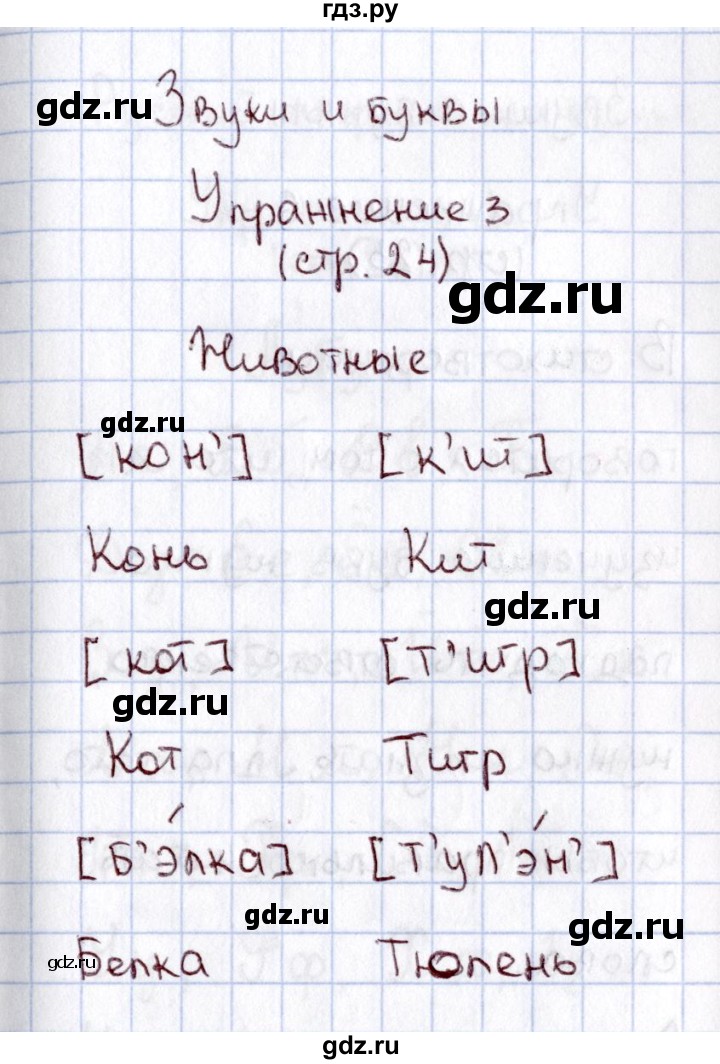 гдз.ру
gdz.ru
Звуки и буквы
Упражнение 3
(стр. 24)
gdz.ru
Животные
gdz.ru
[кон'] [к'ит]
Конь Кит
gdz.ru
[кот] [т'игр]
gdz.ru
Кот Тигр
[б'элка] [т'ул'эн']
gdz.ru
gdz.ru
gdz.ru
Белка Тюлень
гдз.ру